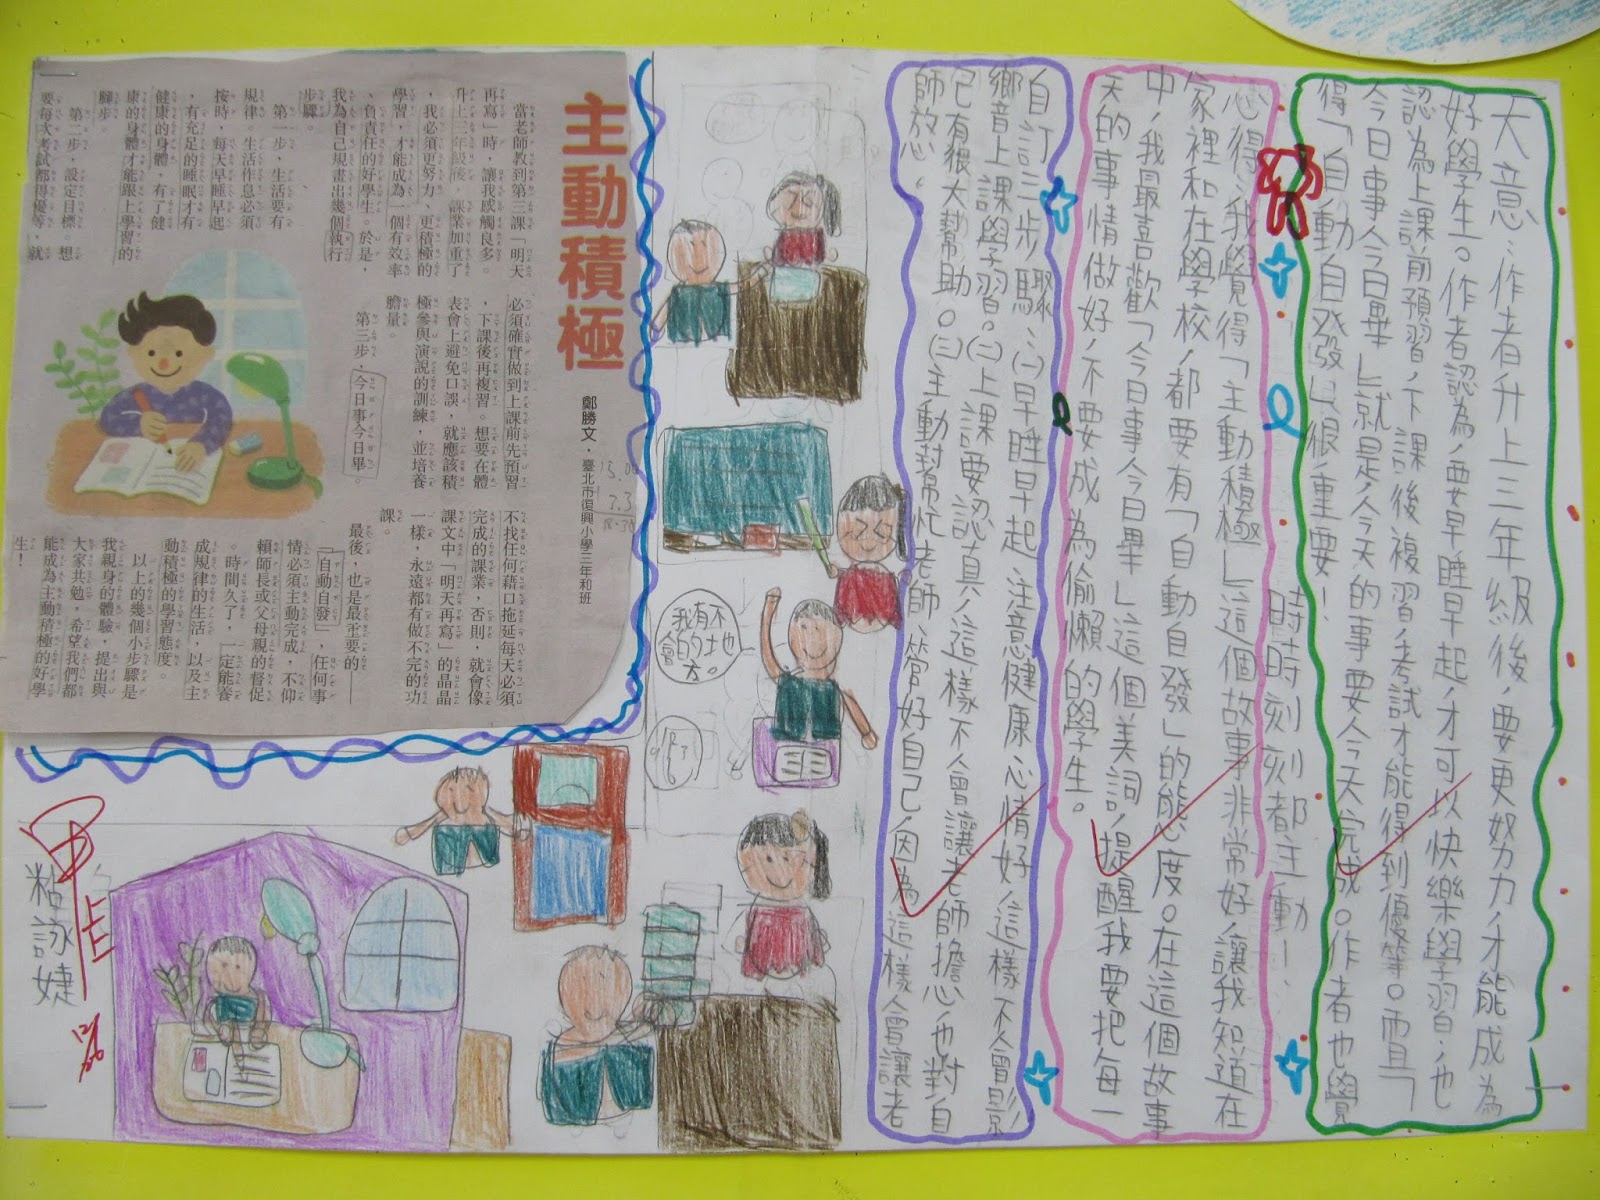 大意:作者升上三年級後,要更努力,才能成為
好學生。作者認為,要早睡早起,才可以快樂學習,也
認為上課前預習,下課後複習,考試才能得到優等。而且「
今日事今日畢」就是,今天的事要今天完成。作者也覺
得「自動自發」很重要!
時時刻刻都主動!
心得:我覺得「主動積極」這個故事非常好,讓我知道在
家裡和在學校,都要有「自動自發」的態度。在這個故事
中,我最喜歡「今日事今日畢」這個美詞,提醒我要把每一
天的事情做好,不要成為偷懶的學生。
自訂三步驟:(一)早睡早起,注意健康,心情好,這樣不會影
響音上課學習。(二)上課要認真,這樣不會讓老師擔心,也對自
己有很大幫助。(三)主動對幫忙老師,管好自己,因為這樣會讓老
師放心。
我也有不會的地方。
主動積極
鄭勝文.臺北市復興小學三年和班
當老師教到第三課「明天
再寫」時,讓我感觸良多。
升上三年級後,課業加重了
,我必須更努力、更積極的
學習,才能成為一個有效率
、負責任的好學生。於是,
我為自己規畫出幾個執行
步驟。
第一步,生活要有
規律。生活作息必須
按時,每天早睡早起
,有充足的睡眠才有
健康的身體,有了健
康的身體才能跟上學習的
腳步。
第二步,設定目標。想
要每次考試都得優等,就
必須確實做到上課前先預習
,下課後再複習。想要在體
表會上避免口誤,就應該積
極參與演說的訓練,並培養
膽量。
第三步,今日事今日畢。
不找任何藉口拖延每天必須
完成的課業,否則,就會像
課文中「明天再寫」的晶晶
一樣,永遠都有做不完的功
課。
最後,也是最重要的——
「自動自發」,任何事
情必須主動完成,不仰
賴師長或父母親的督促
。時間久了,一定能養
成規律的生活,以及主
動積極的學習態度。
以上的幾個小步驟是
我親身的體驗,提出與
大家共勉,希望我們都
能成為主動積極的好學
生!
甲上
粘詠婕